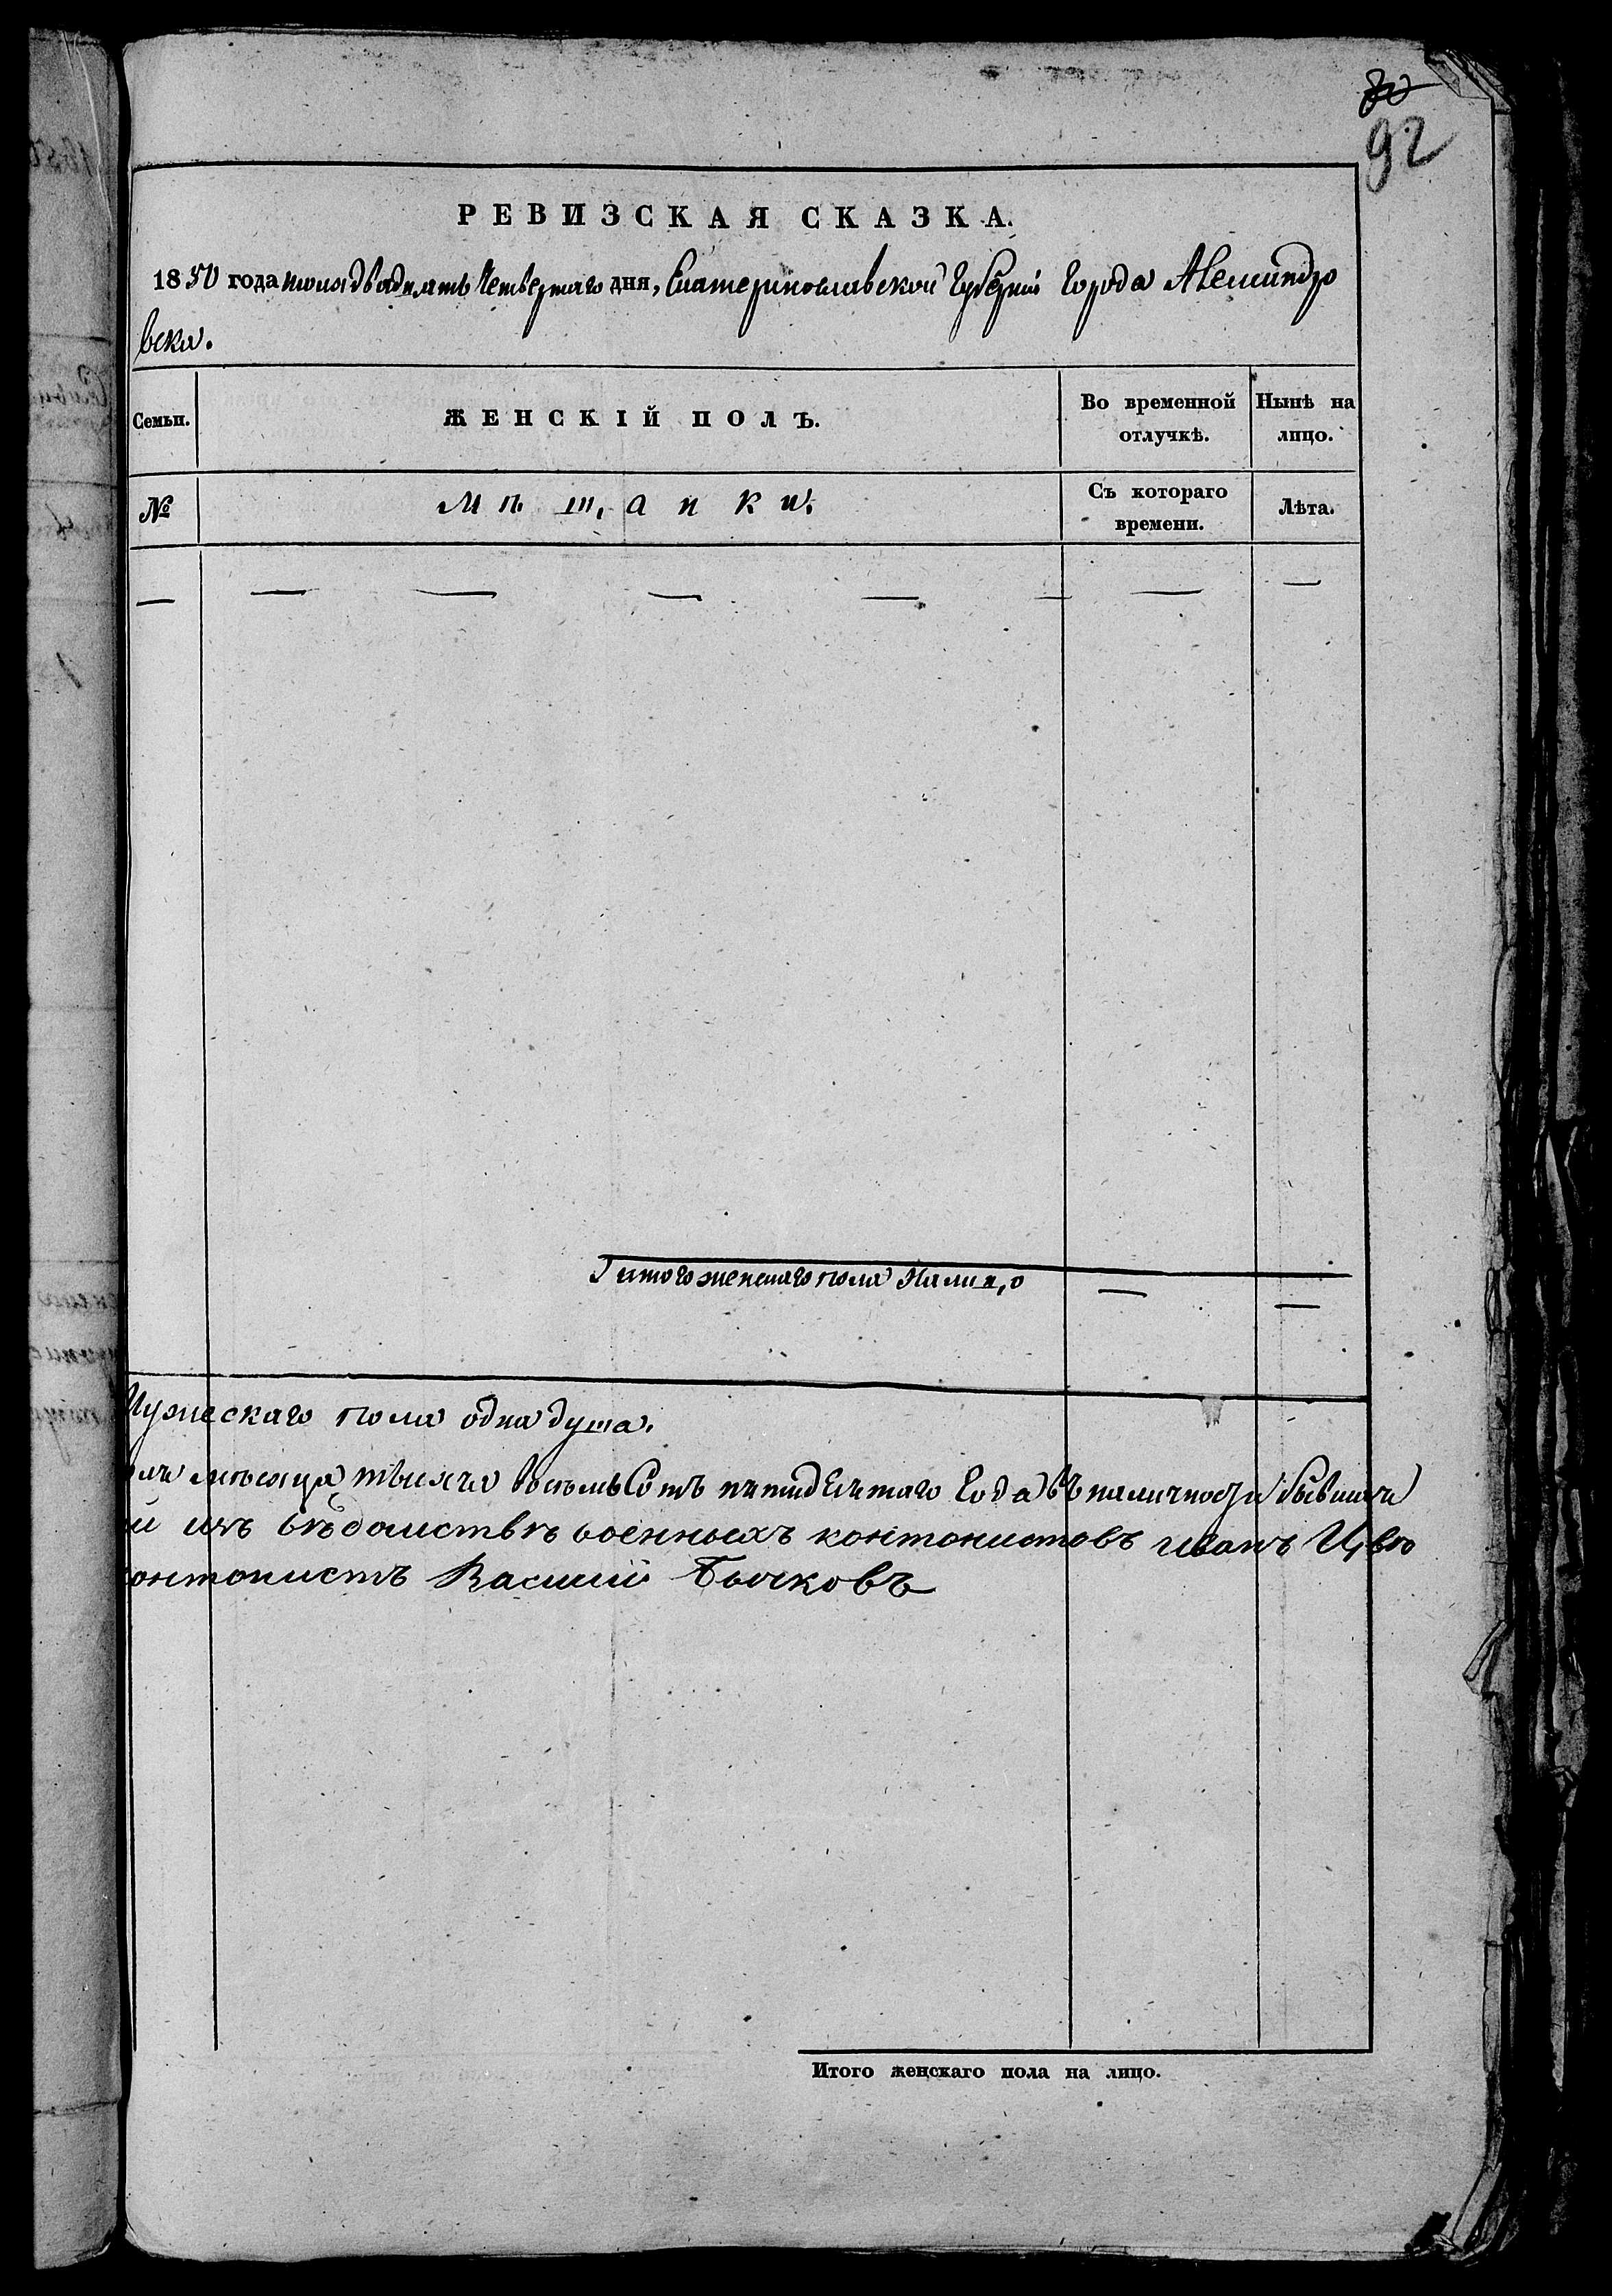 80
92
РЕВИЗСКАЯ СКАЗКА.
1850 года июля двадцать Четвертаго дня, Екатеринославской Губерніи Города Александро
вска.
Семьи. ЖЕНСКІЙ ПОЛЪ. Во временной отлучкѣ. Нынѣ на лицо.
№ Мѣщанки. Съ котораго времени. Лѣта.
— — — — — — — —
Итого женскаго пола Налицо — —
Мужескаго пола одна душа.
мѣсяца тысяча восемьсотъ пятидесятаго Года въ наличности бывшия
и изъ вѣдомствъ военныхъ контонистовъ иванъ Цвѣ
онтонистъ Василий Бычковъ
Итого женскаго пола на лицо.